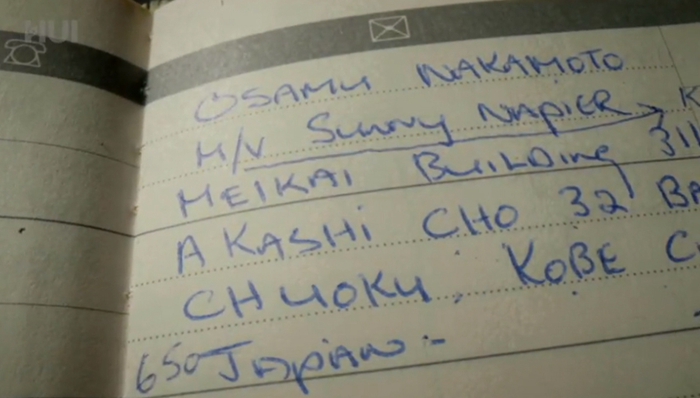 HUI
OSAMU NAKAMOTO
M/V Sunny NAPIER K
MEIKAI BUILDING 311
AKASHI CHO 32 BA
CHUOKU. KOBE C
650 JAPAN -